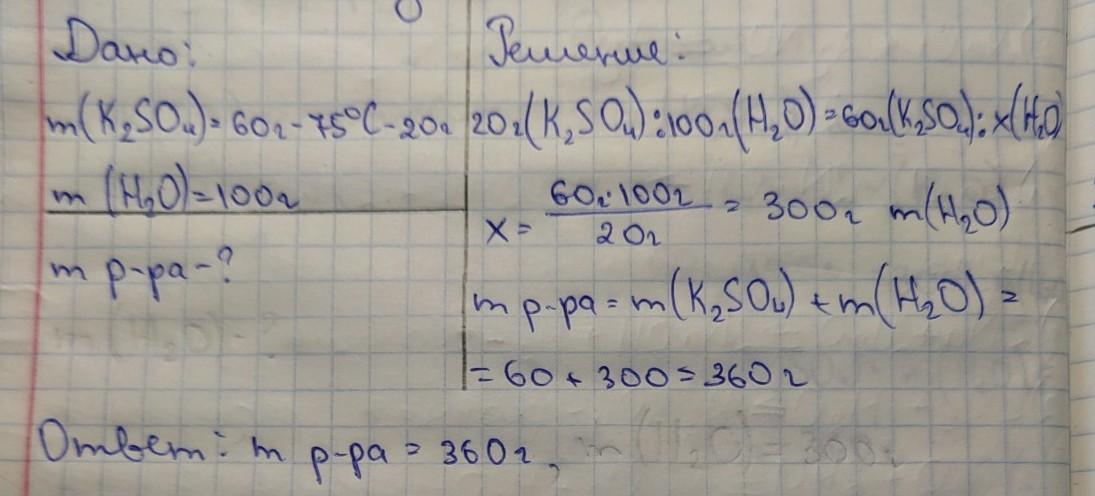 Дано:
m(K₂SO₄)=60г-75°C-20г
m (H₂O)=100г
m р-ра-?
Решение:
20г(K₂SO₄):100г(H₂O)=60г(K₂SO₄):x(H₂O)
x = 60г·100г / 20г = 300г m(H₂O)
m р-ра = m(K₂SO₄) + m(H₂O) =
= 60 + 300 = 360г
Ответ: m р-ра = 360г,